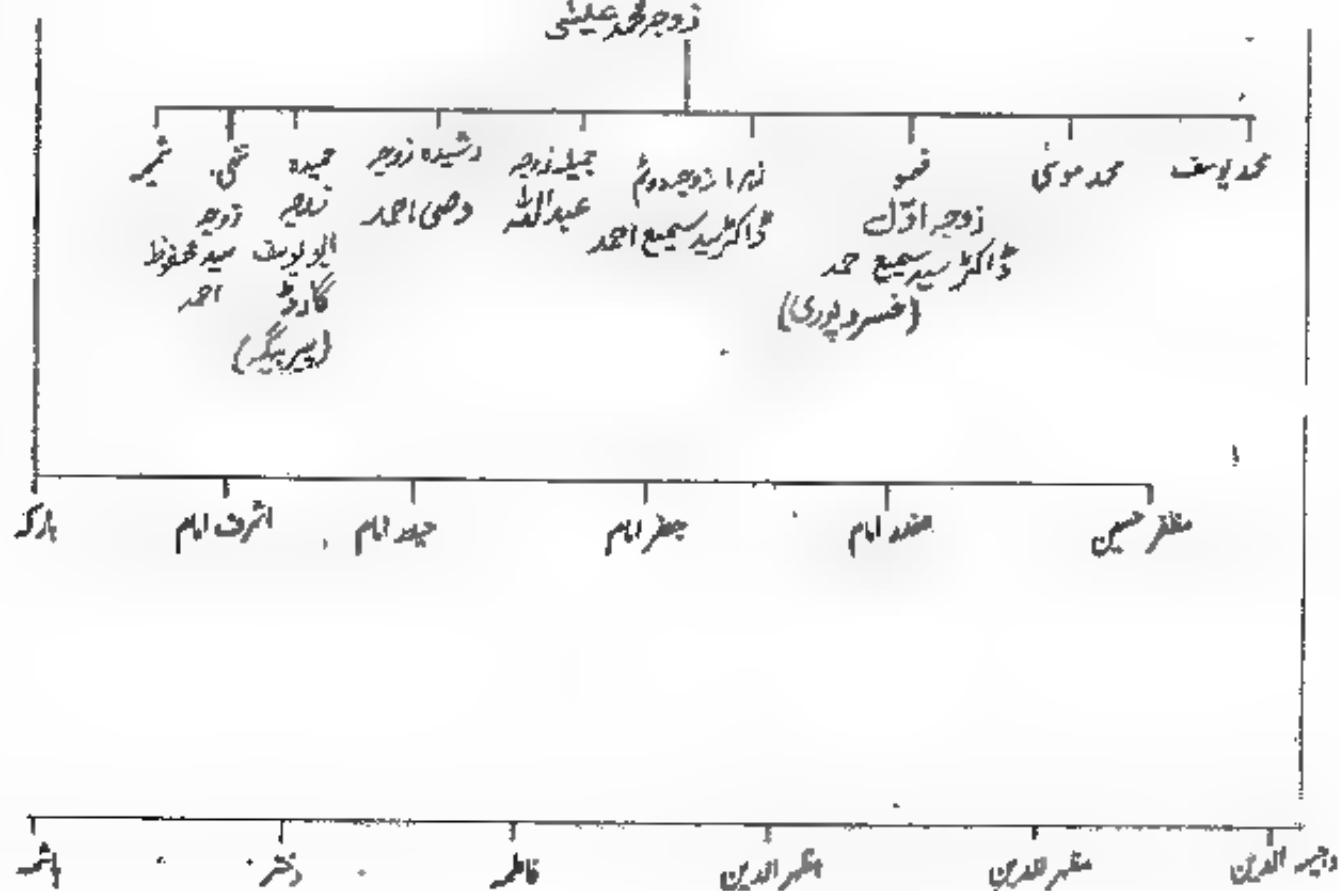 زوجہ محمد عیسٰی
محمد یوسف
محمد موسٰی
زوجہ اوّل
ڈاکٹر سید سمیع حمد
(خسرو پوری)
زہرا زوجہ دوئم
ڈاکٹر سید سمیع احمد
جمیلہ زوجہ
عبداللہ
رشیدہ زوجہ
وصی احمد
حمیدہ
زوجہ
ابو یوسف
گارڈ
(پیر بیگہ)
زوجہ
سید محفوظ
احمد
مظفر حسین
صفدر امام
جعفر امام
حیدر امام
اشرف امام
مظہر الدین
فاطمہ
دختر